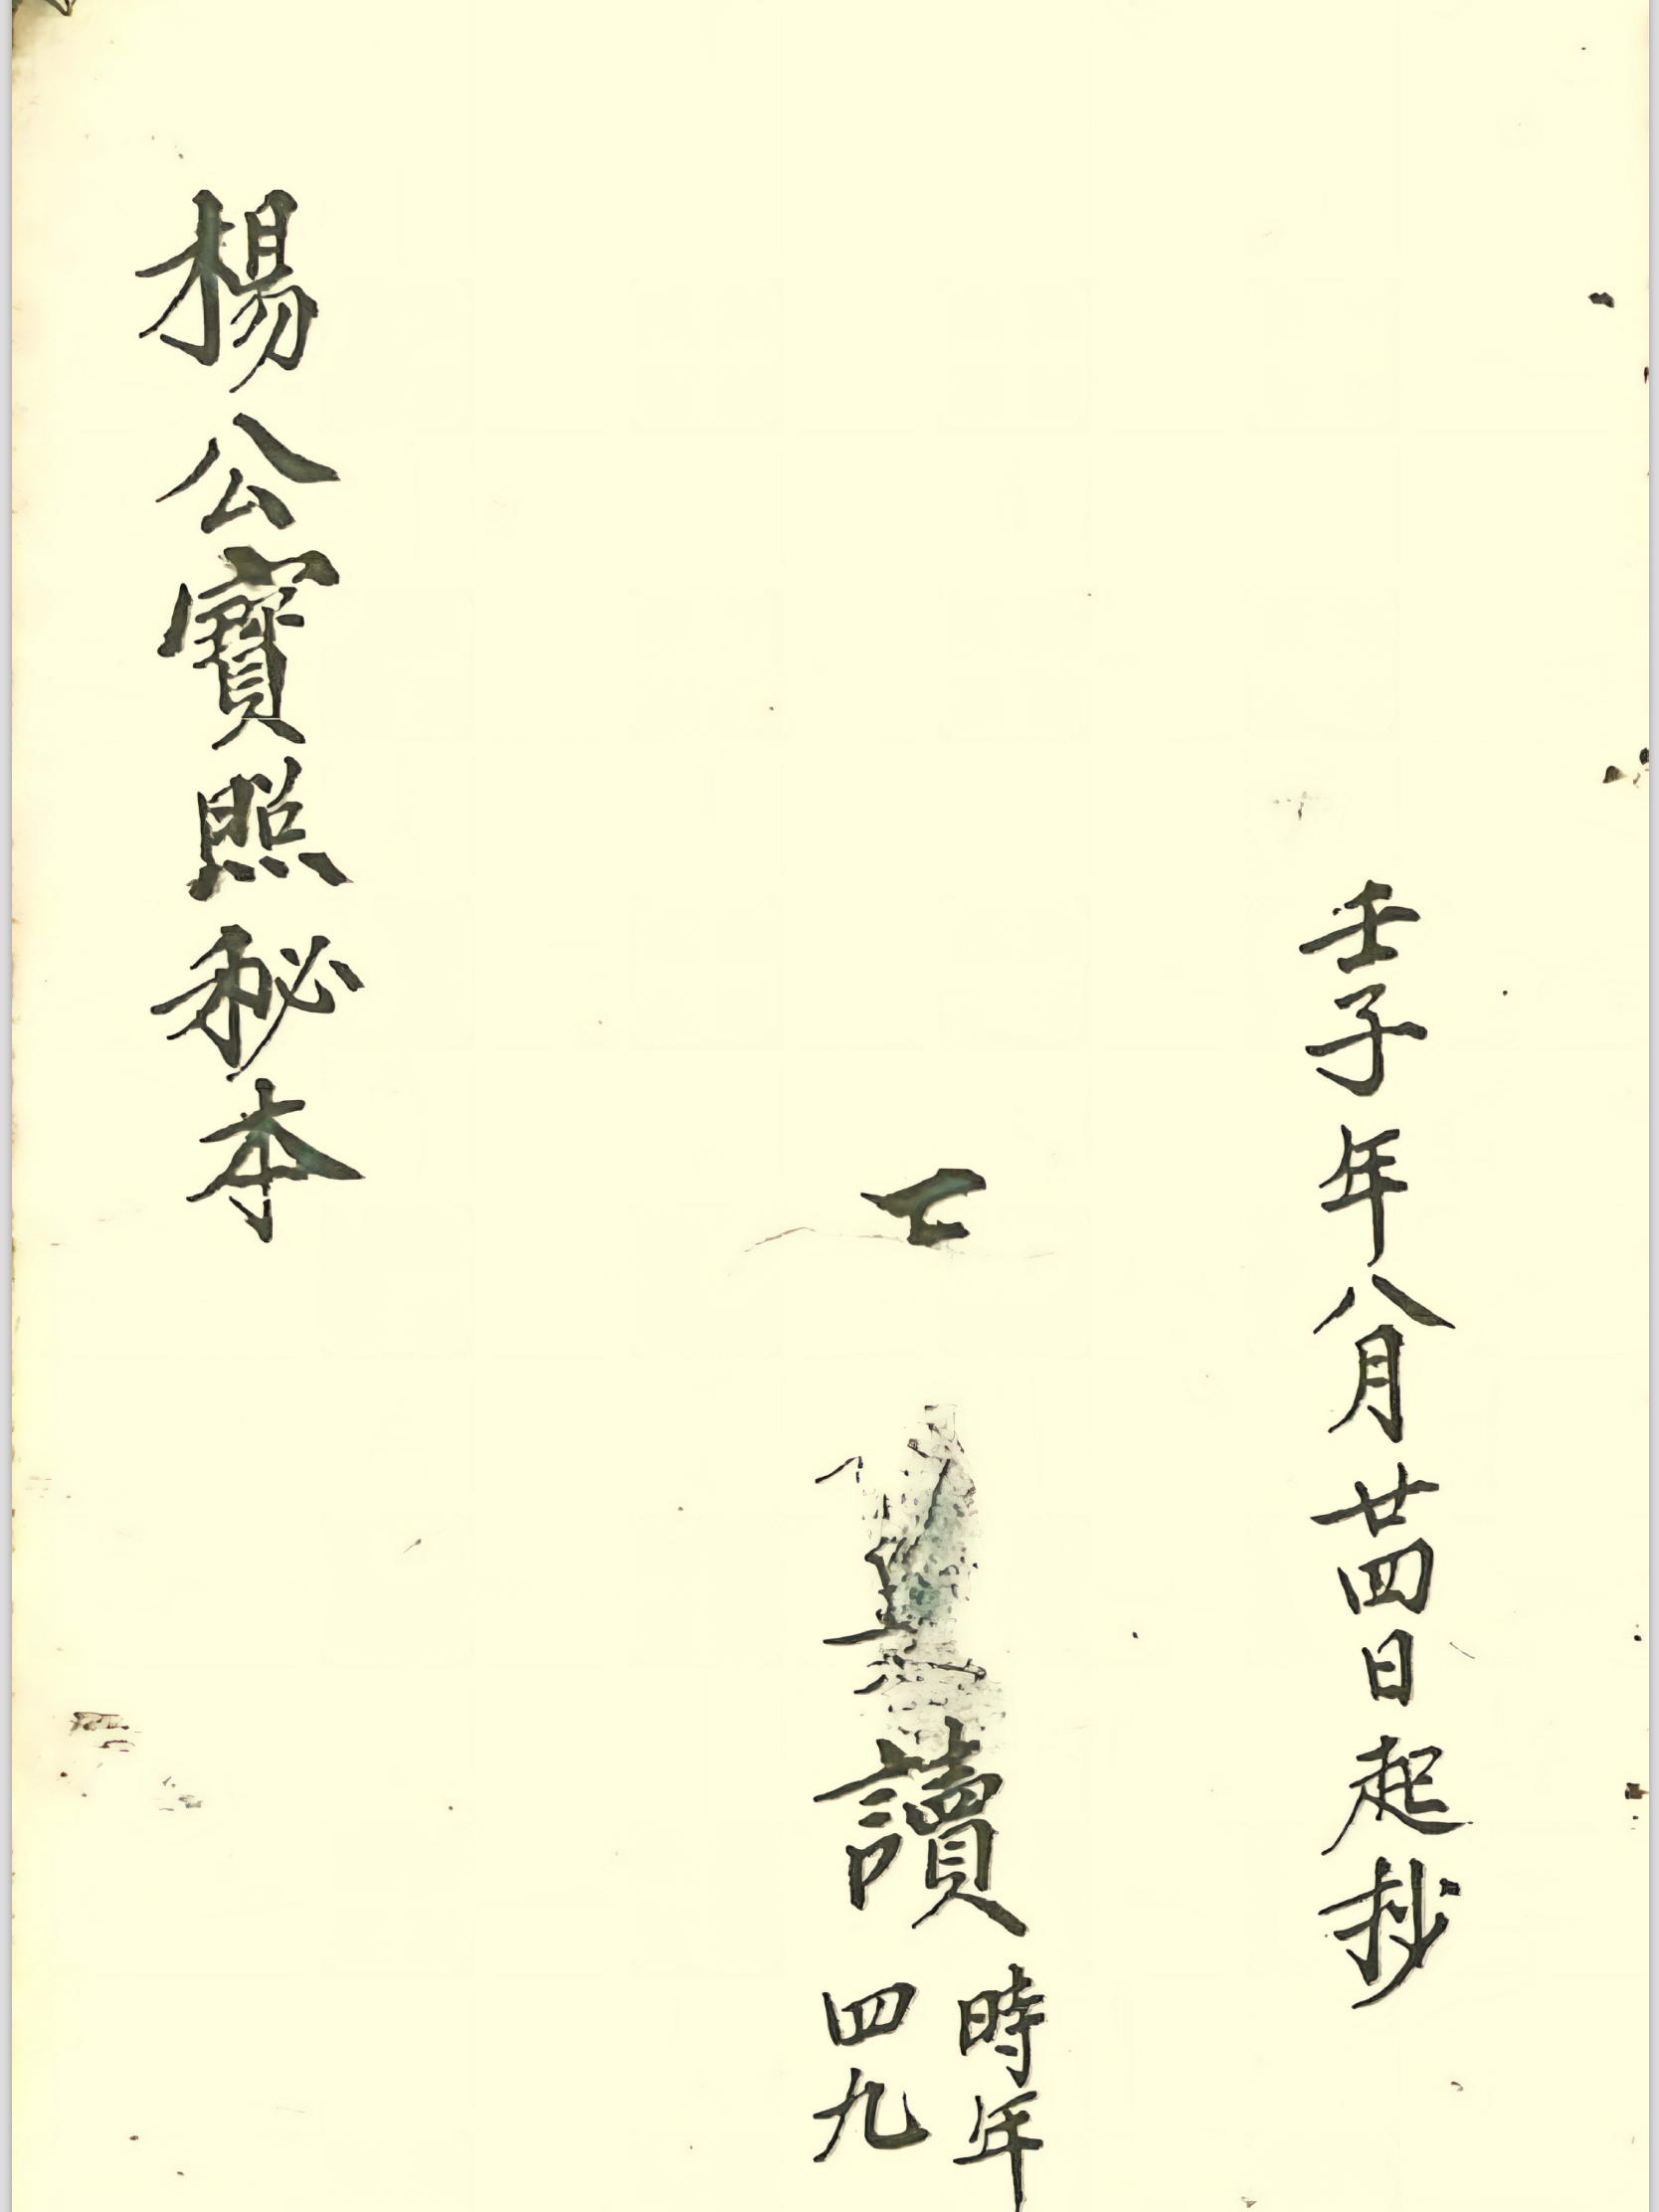 壬子年八月廿四日起抄
讀
時年
四九
楊公寳照秘本